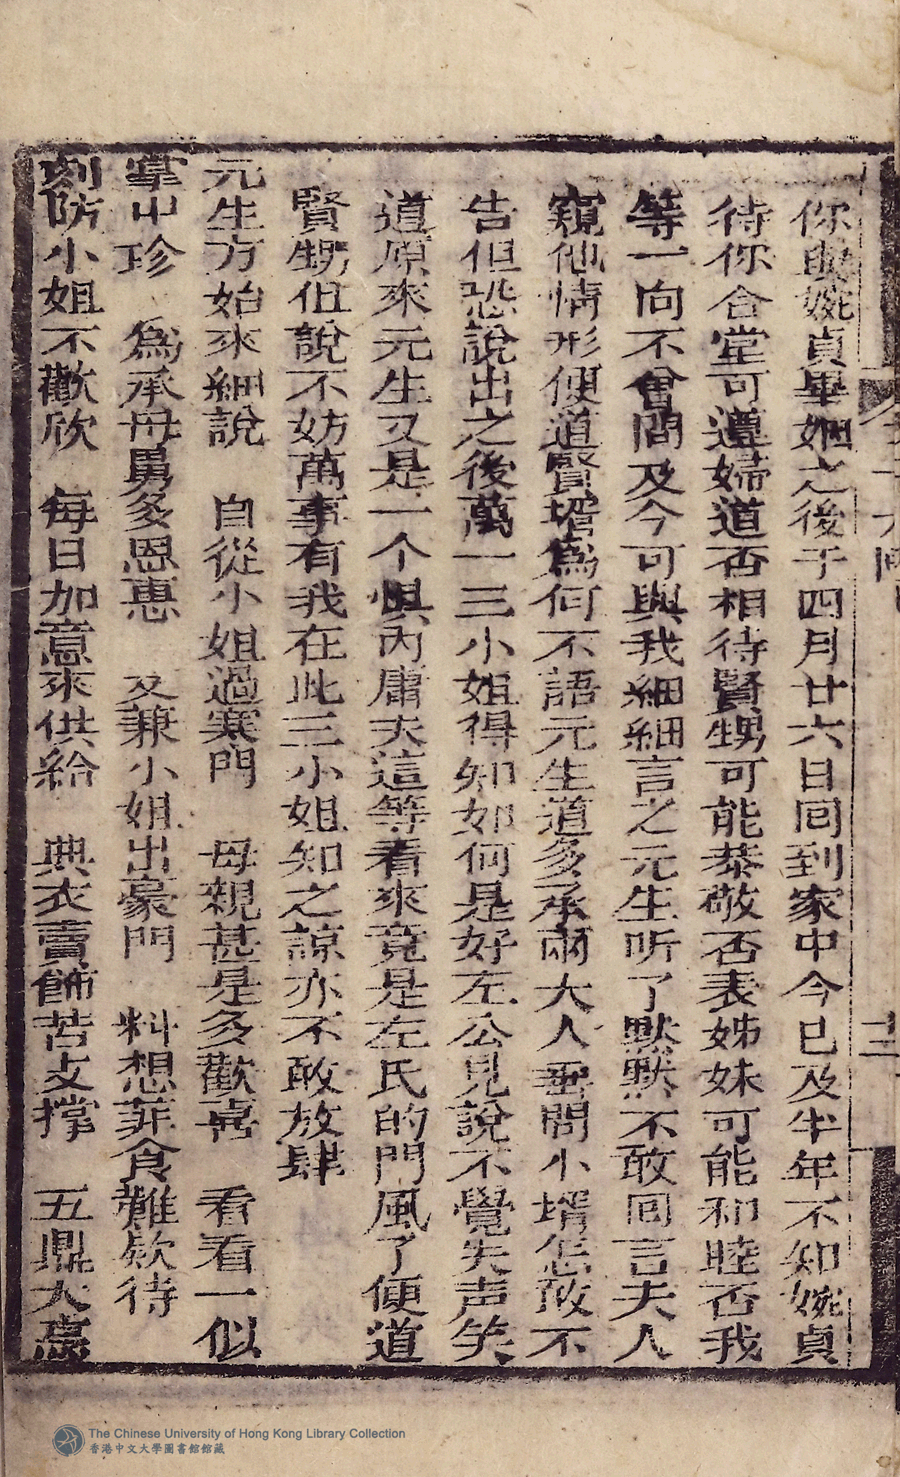 你與婉貞畢姻之後于四月廿六日囘到家中今已及半年不知婉貞
待你合堂可遵婦道否相待賢甥可能恭敬否表姊妹可能和睦否我
等一向不曾問及今可與我細細言之元生听了默默不敢囘言夫人
窺他情形便道賢壻爲何不語元生道多承兩大人垂問小壻怎敢不
告但恐說出之後萬一三小姐得知如何是好左公見說不覺失声笑
道原來元生又是一个惧內庸夫這等看來竟是左氏的門風了便道
賢甥但說不妨萬事有我在此三小姐知之諒亦不敢放肆
元生方始來細說 自從小姐過寒門 母親甚是多歡喜 看看一似
掌中珍 爲承母舅多恩惠 又兼小姐出豪門 料想菲食難欵待
刻防小姐不歡欣 每日加意來供給 典衣賣飾苦支撑 五鼎大烹
三
The Chinese University of Hong Kong Library Collection
香港中文大學圖書館館藏